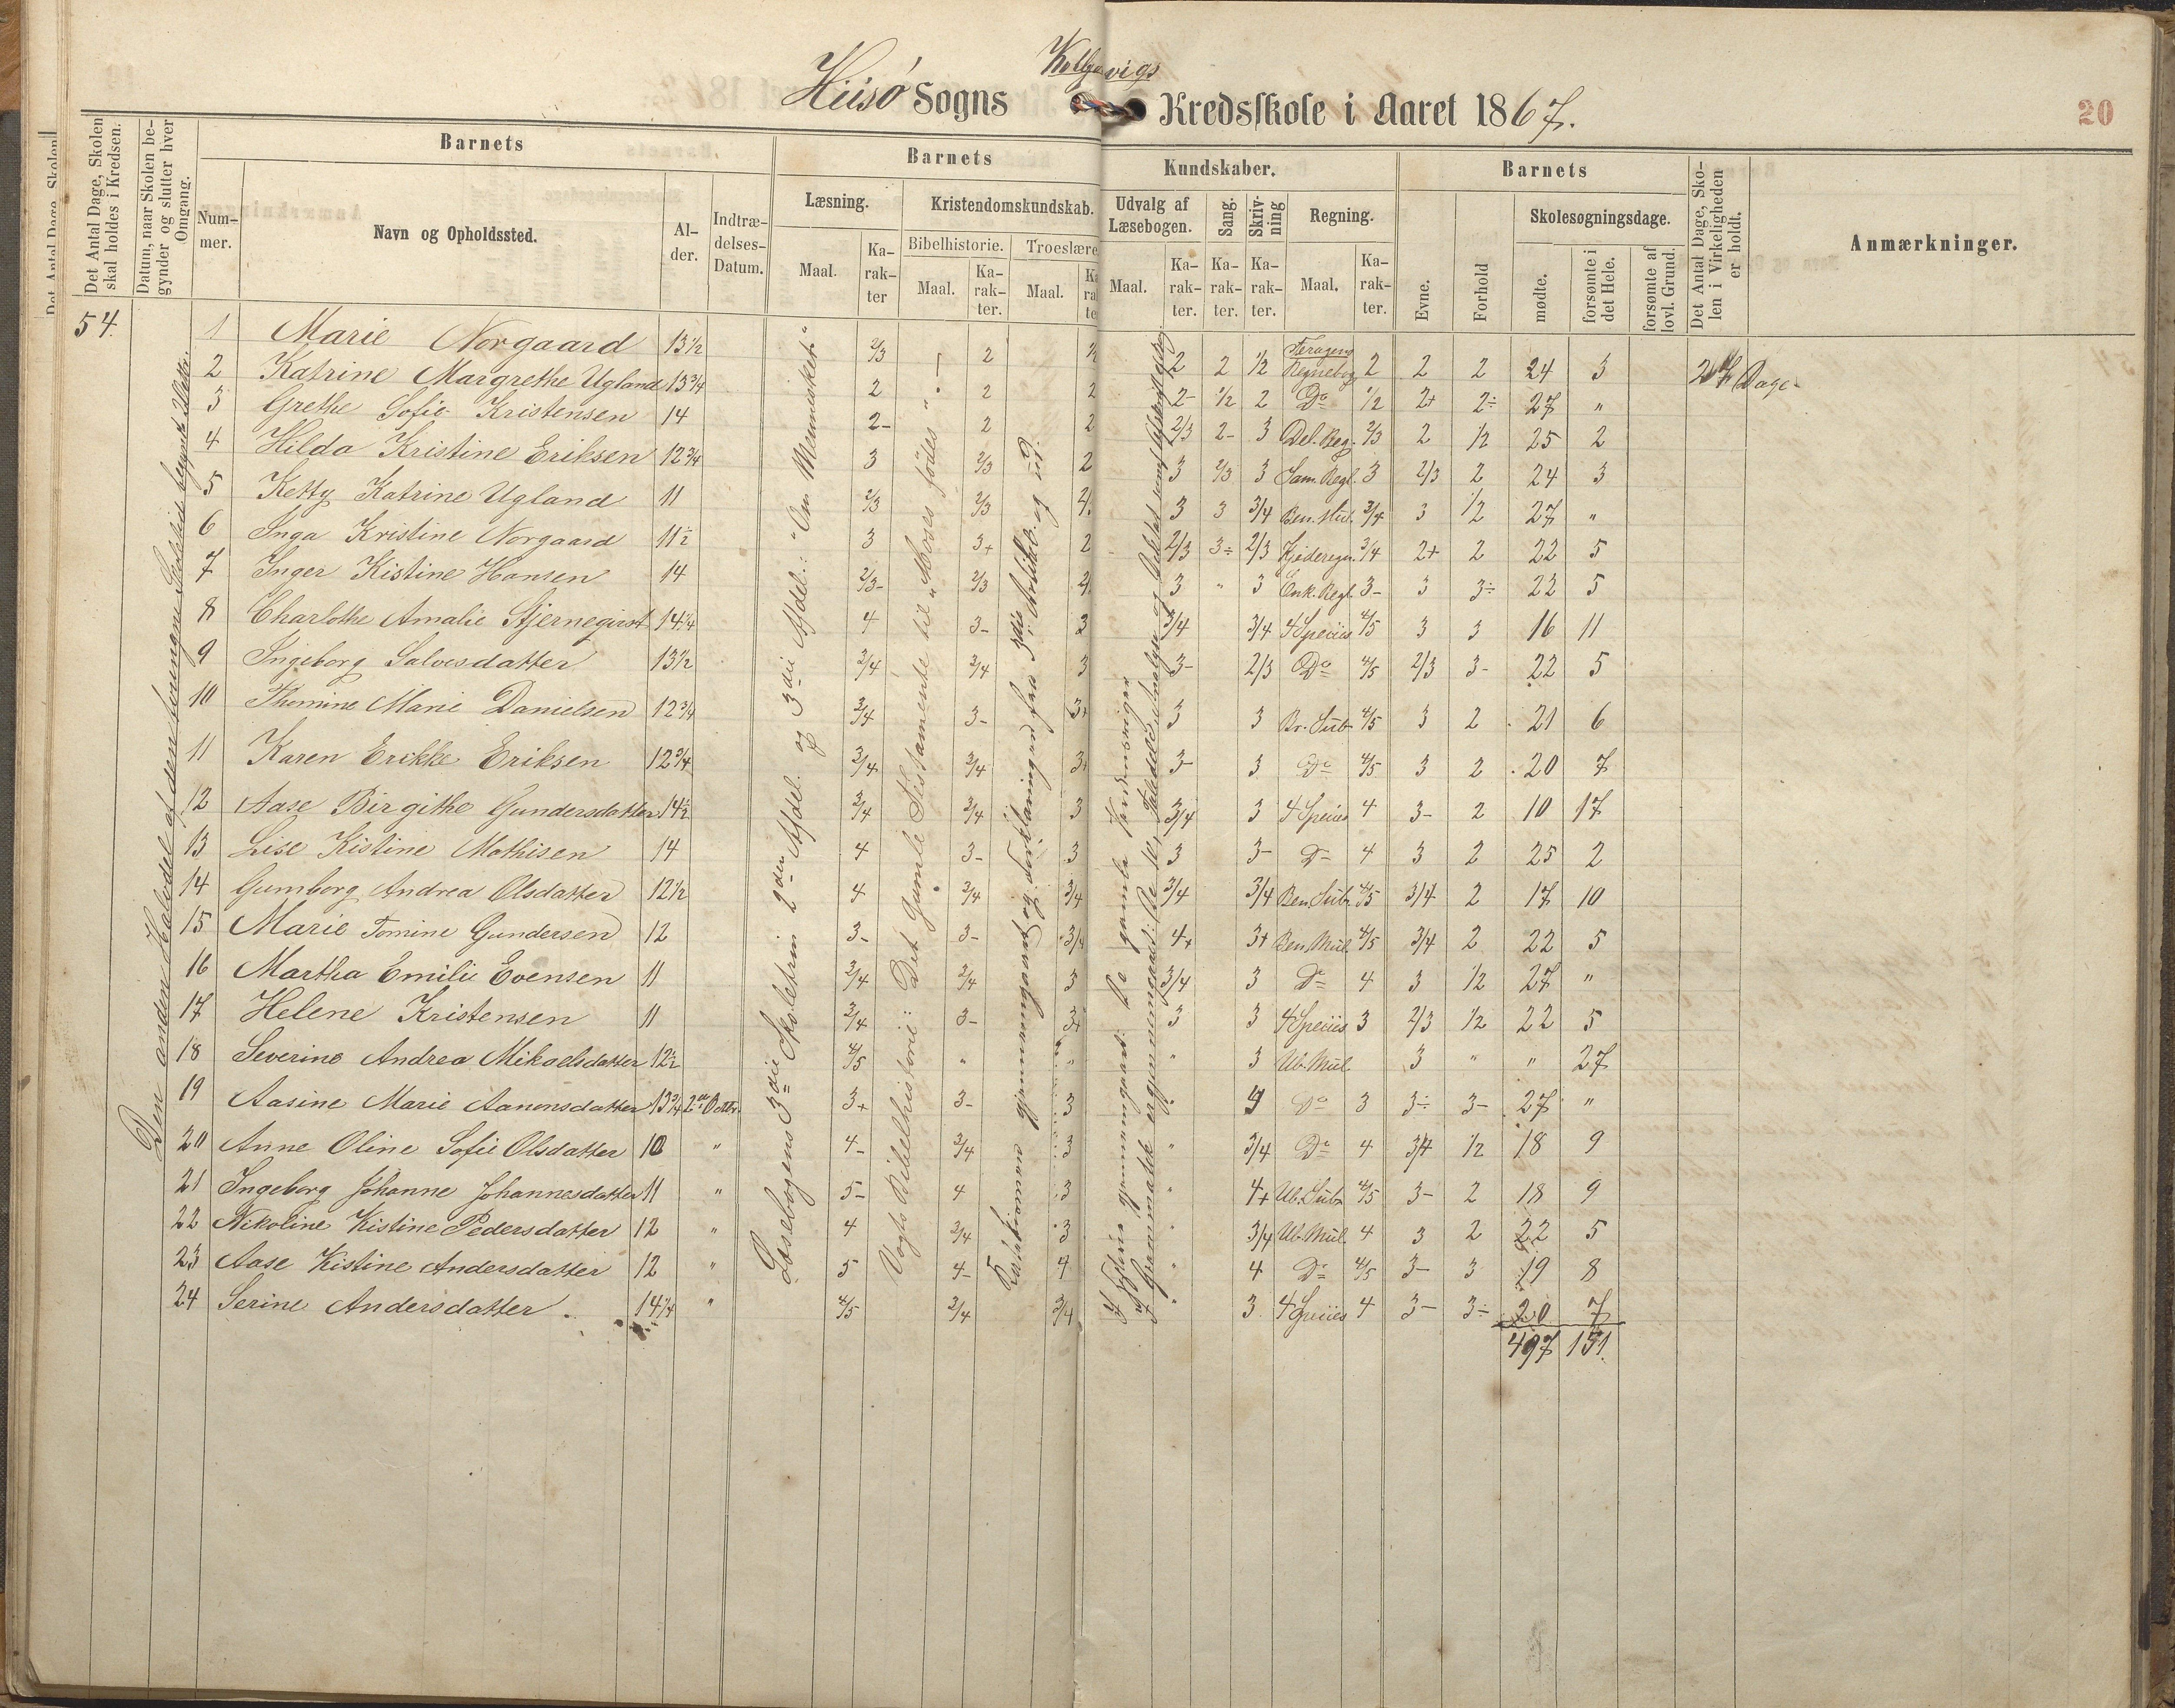 Hisø Sogns Kolbjørnsvigs Kredsskole i Aaret 1867.
20
Det Antal Dage, Skolen skal holdes i Kredsen.
Datum, naar Skolen begynder og slutter hver Omgang.
Barnets
Nummer.
Navn og Opholdssted.
Alder.
Indtrædelses-Datum.
Barnets Kundskaber.
Læsning.
Maal.
Karakter
Kristendomskundskab.
Bibelhistorie.
Maal.
Karakter.
Troeslære
Maal.
Udvalg af Læsebogen.
Maal.
Karakter.
Sang.
Karakter.
Skrivning
Karakter.
Regning.
Maal.
Karakter.
Barnets
Evne.
Forhold
Skolesøgningsdage.
mødte.
forsømte i det Hele.
forsømte af lovl. Grund.
Det Antal Dage, Skolen i Virkeligheden er holdt.
Anmærkninger.
54.
1 Marie Norgaard 13½ 2/3 2 ½ 2 2 ½ Regnebog 2 2 2 24 3 27 Dage
2 Katrine Margrethe Ugland 13¾ 2 2 2 2- ½ 2 Do ½ 2+ 2÷ 27 "
3 Grethe Sofie Kristensen 14 2- 2 2 2/3 2- 3 Del. Reg. 2/3 2 ½ 25 2
4 Hilda Kristine Eriksen 12¾ 3 2/3 2 3 2/3 3 Sam. Regl. 3 2/3 2 24 3
5 Ketty Katrine Ugland 11 2/3 2/3 3 3 3/4 Ben. Mul. 3/4 3 ½ 27 "
6 Inga Kristine Norgaard 11½ 3 3+ 2 2/3 3÷ 2/3 Kjederegn. 3/4 2+ 2 22 5
7 Inger Kistine Hansen 14 2/3- 2/3 3 " 3 Enk. Regl. 3- 3 3÷ 22 5
8 Charlothe Amalie Stjerneqvist 14¼ 4 3- 3 3/4 3/4 4 Speciis 4/5 3 3 16 11
9 Ingeborg Salvesdatter 13½ 3/4 3/4 3 3- 2/3 Do 4/5 2/3 3- 22 5
10 Thomine Marie Danielsen 12¾ 3/4 3- 3+ 3 3 Br. Sub. 4/5 3 2 21 6
11 Karen Erikke Eriksen 12¾ 3/4 3/4 3+ 3- 3 Do 4/5 3 2 20 7
12 Aase Birgithe Gundersdatter 14½ 3/4 3/4 3 3/4 3 4 Speciis 4 3- 2 10 17
13 Lise Kistine Mathisen 14 4 3- 3 3 3- Do 4 3 2 25 2
14 Gumborg Andrea Olsdatter 12½ 4 3/4 3/4 3/4 3/4 Ben. Sub. 4/5 3/4 2 17 10
15 Marie Tomine Gundersen 12 3- 3- 3/4 4+ 3+ Ben. Mul. 4/5 3/4 2 22 5
16 Martha Emilie Evensen 11 3/4 3/4 3 3/4 3 Do 4 3 ½ 27 "
17 Helene Kristensen 11 3/4 3- 3+ 3 3 4 Speciis 3 2/3 ½ 22 5
18 Severine Andrea Mikaelsdatter 12½ 4/5 " " " 3 Ub. Mul. 3 " " 27
19 Aasine Marie Aanonsdatter 13¾ 2den Octbr. 3+ 3- 3 " 4 Do 3 3÷ 3- 27 "
20 Anne Oline Sofie Olsdatter 10 " 4- 3/4 3 " 3/4 Do 4 3/4 ½ 18 9
21 Ingeborg Johanne Johannesdatter 11 " 5- 4 3 " 4+ Ub. Sub. 4/5 3- 2 18 9
22 Nikoline Kistine Pedersdatter 12 " 4 3/4 3 " 3/4 Ub. Mul. 4 3 2 22 5
23 Aase Kistine Andersdatter 12 " 5 4- 4 " 4 Do 4/5 3- 3 19 8
24 Serine Andersdatter. 14¼ " 4/5 3/4 3/4 " 3. 4 Speciis 4 3- 3÷ 20 7
497 151
Den anden Halvdel af den tvungne Skoletid begynte
Læsebogens 3die Skoletrin 2den Afdel. og 3die Afdel.: "Om Mennesket."
Vogts Bibelhistorie: Det Gamle Testamente til "Moses fødes"
Katekismen gjennemgaaet og Forklaringen fra 3die Artikel og ud.